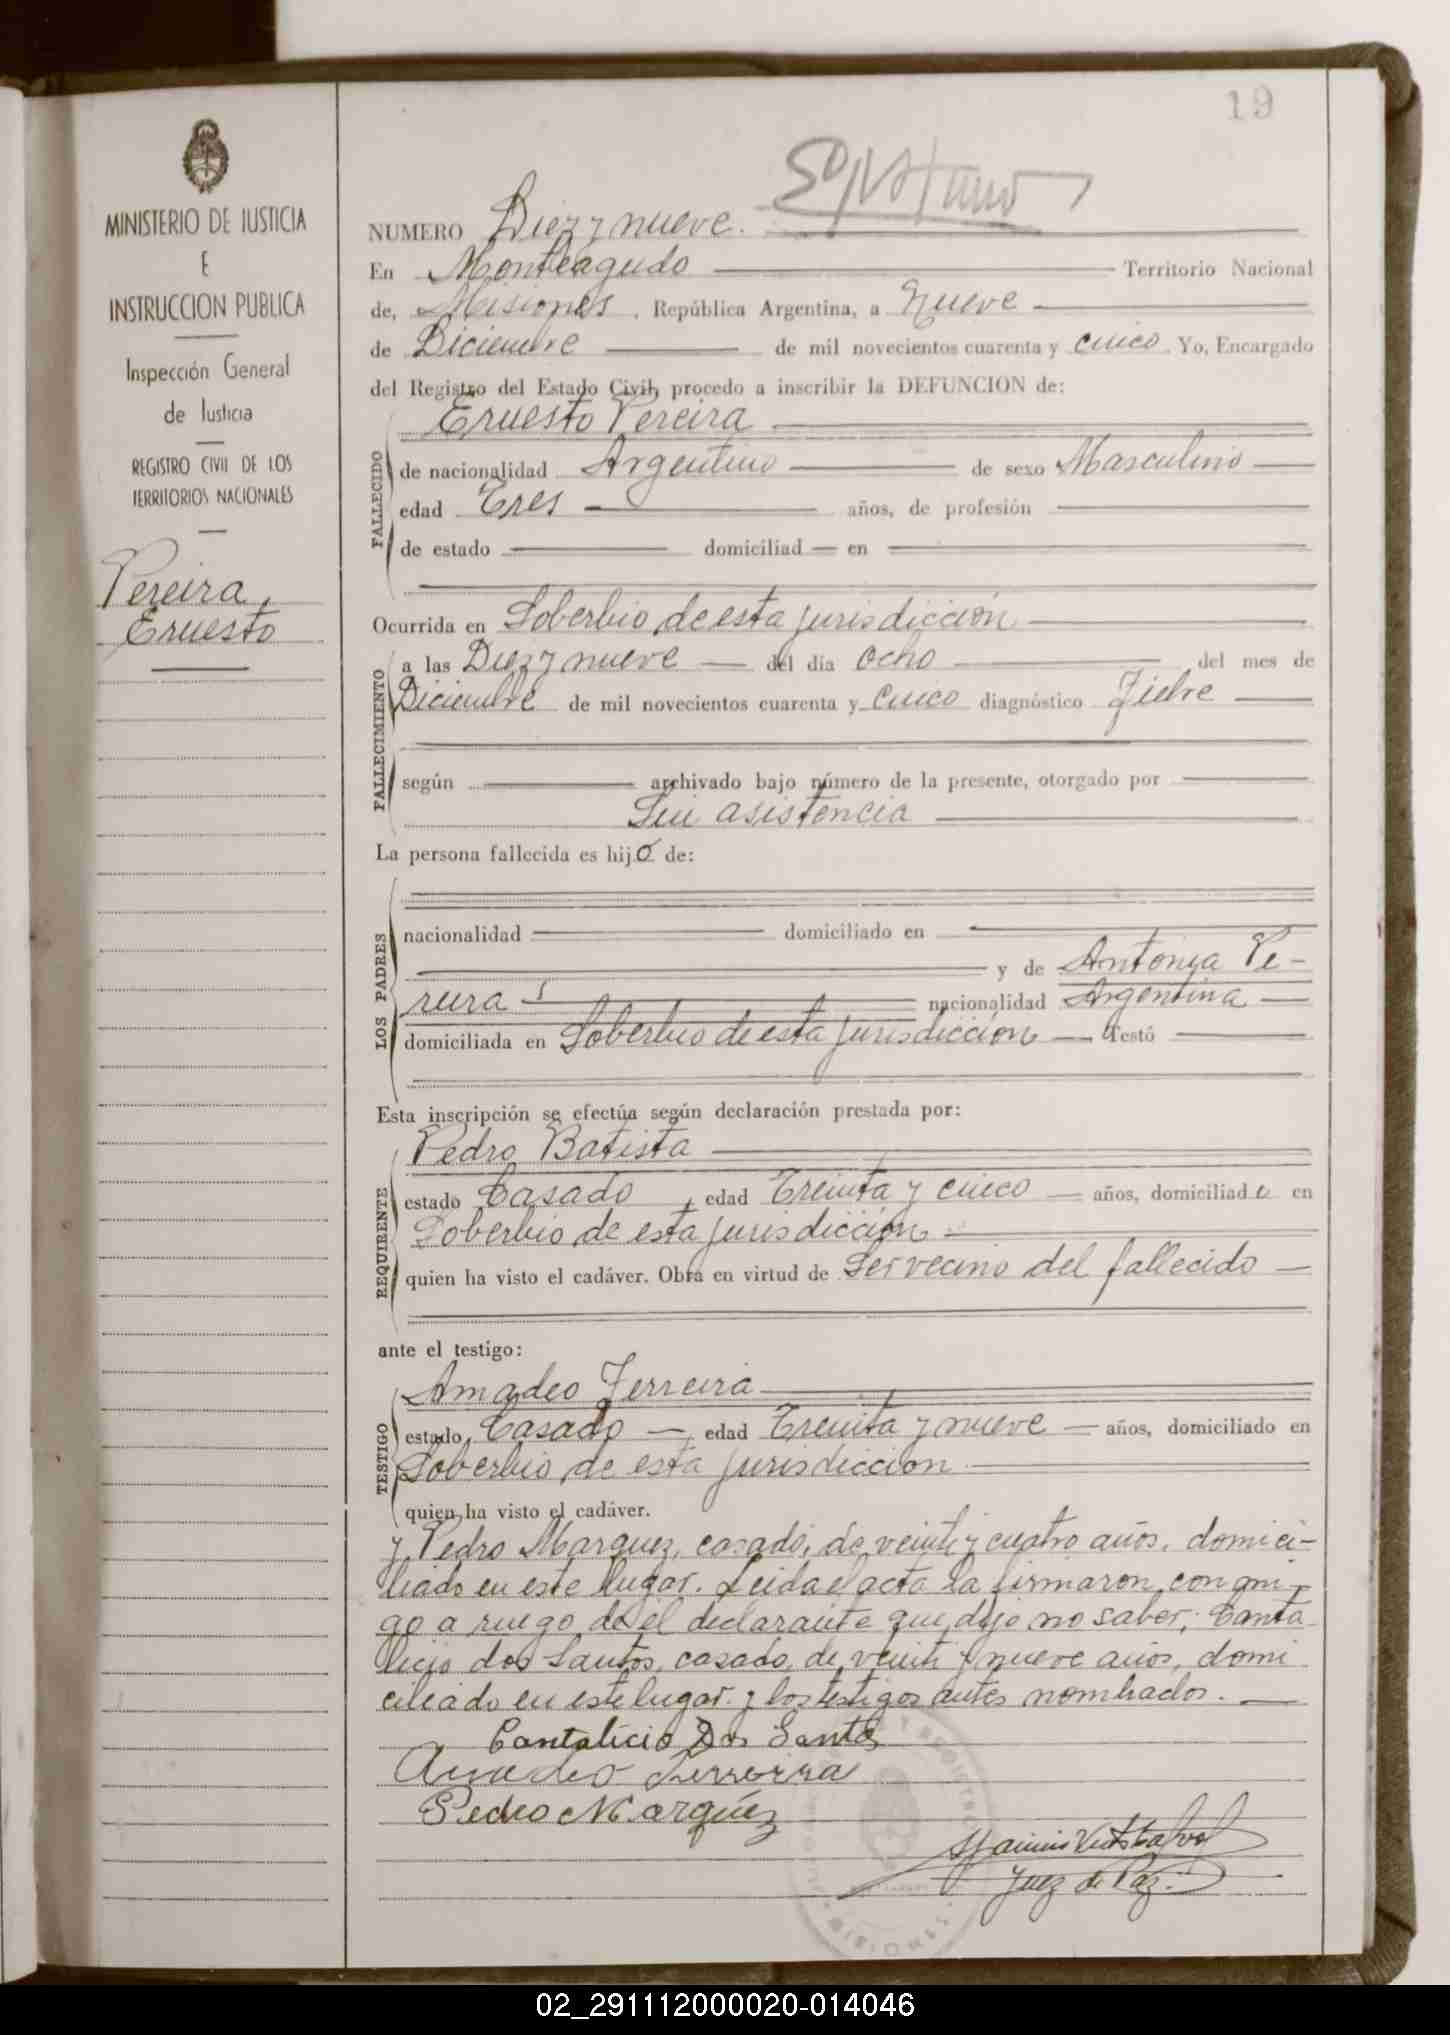 19
MINISTERIO DE JUSTICIA
E
INSTRUCCION PUBLICA
Inspección General
de Justicia
REGISTRO CIVIL DE LOS
TERRITORIOS NACIONALES
Pereira,
Ernesto
NUMERO Diez y nueve.
En Monteagudo Territorio Nacional
de, Misiones, República Argentina, a Nueve
de Diciembre de mil novecientos cuarenta y cinco. Yo, Encargado
del Registro del Estado Civil, procedo a inscribir la DEFUNCION de:
Ernesto Pereira
FALLECIDO
de nacionalidad Argentino de sexo Masculino
edad Tres años, de profesión
de estado domiciliad en
Ocurrida en Soberbio de esta jurisdicción
FALLECIMIENTO
a las Diez y nueve del día ocho del mes de
Diciembre de mil novecientos cuarenta y cinco diagnóstico Fiebre
según archivado bajo número de la presente, otorgado por
Sin asistencia
La persona fallecida es hijo de:
LOS PADRES
nacionalidad domiciliado en
y de Antonia Pe-
reira nacionalidad Argentina
domiciliada en Soberbio de esta jurisdicción Testó
Esta inscripción se efectúa según declaración prestada por:
Pedro Batista
REQUIRENTE
estado Casado, edad Treinta y cinco años, domiciliado en
Soberbio de esta jurisdicción
quien ha visto el cadáver. Obra en virtud de Ser vecino del fallecido
ante el testigo:
Amadeo Ferreira
TESTIGO
estado Casado edad Treinta y nueve años, domiciliado en
Soberbio de esta jurisdiccion
quien ha visto el cadáver.
y Pedro Marquez, casado, de veinti y cuatro años, domici-
liado en este lugar. Leida el acta la firmaron conmi-
go a ruego de el declarante que dijo no saber; Canta
licio dos Santos, casado, de veinti y nueve años, domi
ciliado en este lugar. y los testigos antes nombrados.
Cantalicio Dos Santos
Amadeo Ferreira
Pedro Marquez
Juez de Paz.
02_291112000020-014046